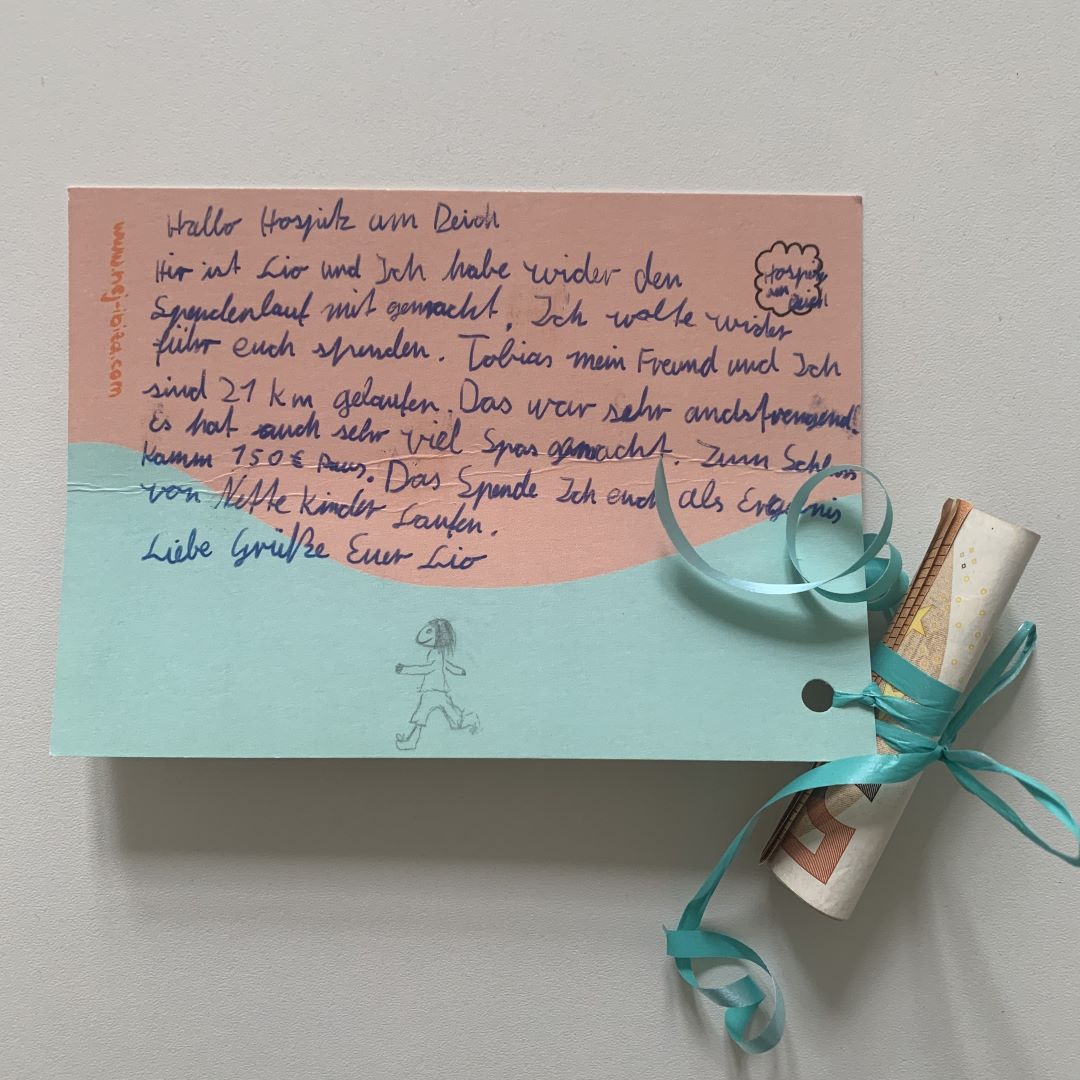 Hallo Hospitz am Deich
Hir ist Lio und Ich habe wider den
Spendenlauf mit gemacht. Ich wolte wider
führ euch spenden. Tobias mein Freund und Ich
sind 21 km gelaufen. Das war sehr andstrengend.
Es hat auch sehr viel Spas gemacht. Zum Schluss
kamm 150€ raus. Das Spende Ich euch als Ergebnis
von Nette Kinder Laufen.
Liebe Grüße Euer Lio
Hospitz
am
Deich
www.nej-ibiza.com